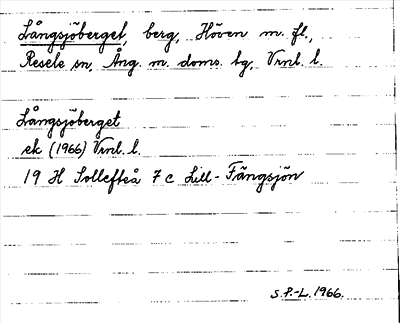 Långsjöberget, berg, Höven m. fl.,
Resele sn, Ång. m. doms. bg, Vrnl. l.
Långsjöberget
ek (1966) Vrnl. l.
19 H Sollefteå 7 c Lill-Fängsjön
S.P.-L. 1966.